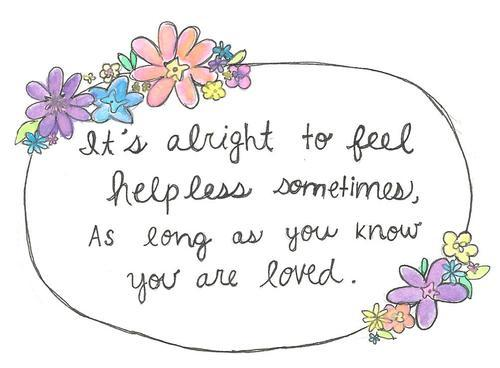 It's alright to feel
helpless sometimes,
As long as you know
you are loved.